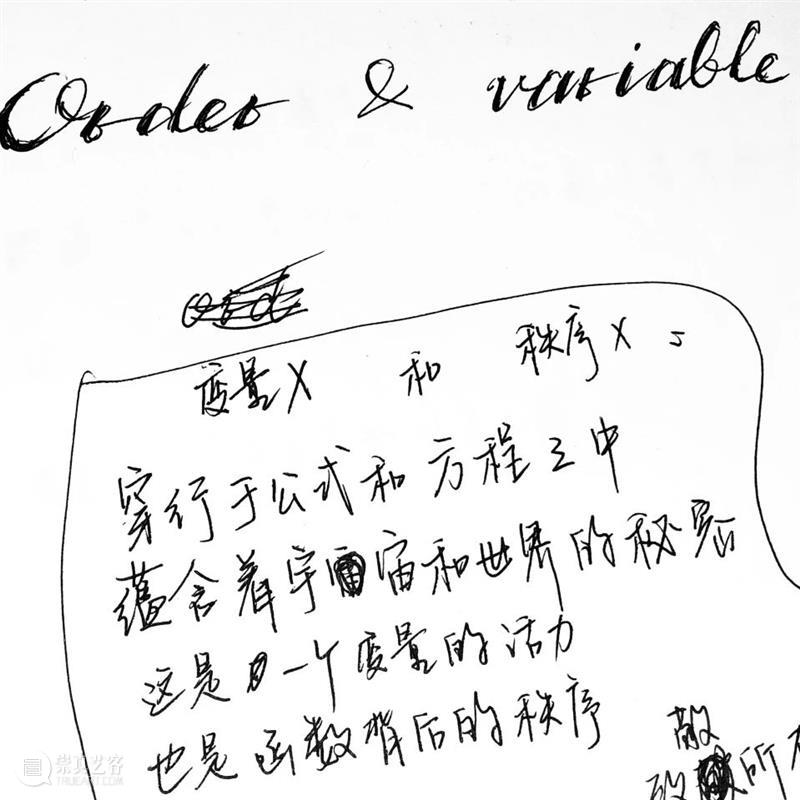 Order & variable
变量X 和 秩序X
穿行于公式和方程之中
蕴含着宇宙和世界的秘密
这是一个变量的活力
也是函数背后的秩序
敬
所有
崇真艺客
TRUEART.COM